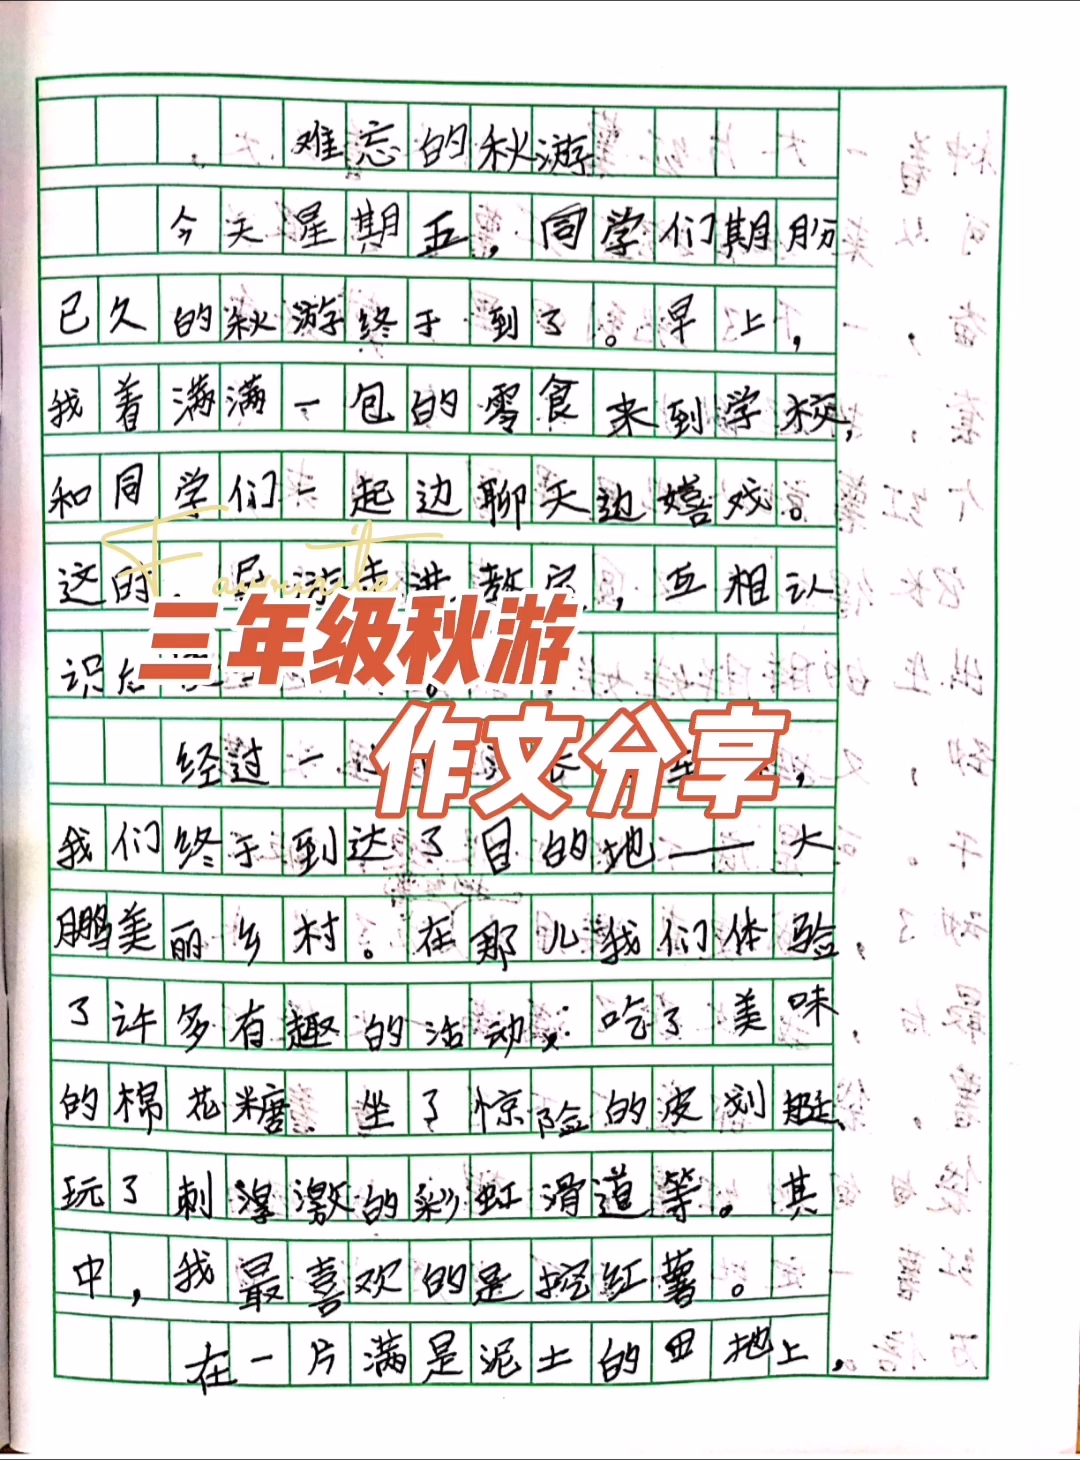 难忘的秋游
今天星期五，同学们期盼
已久的秋游终于到了。早上，
我着满满一包的零食来到学校，
和同学们一起边聊天边嬉戏。
Favourite
这时，导游走进教室，互相认
三年级秋游
识
作文分享
经过一
我们终于到达了目的地——大
鹏美丽乡村。在那儿我们体验
了许多有趣的活动：吃了美味
的棉花糖、坐了惊险的皮划艇、
玩了刺激的彩虹滑道等。其
中，我最喜欢的是挖红薯。
在一片满是泥土的田地上，